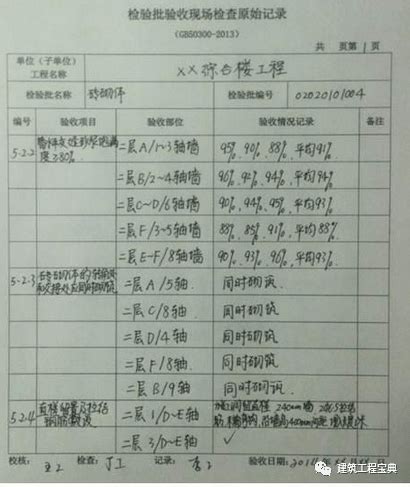 检验批验收现场检查原始记录
(GB50300-2013)
共 页第1页
单位(子单位)工程名称 xx综合楼工程
检验批名称 砖砌体 检验批编号 02020101004
编号 验收项目 验收部位 验收情况记录 备注
5.2.2 墙体灰缝砂浆饱满度≥80% 二层A/1~3轴墙 95%,90%,88%,平均91%
二层B/2~4轴墙 96%,92%,94%,平均94%
二层C~D/6轴墙 90%,94%,95%,平均93%
二层F/3~5轴墙 88%,85%,91%,平均88%
二层E~F/8轴墙 90%,93%,96%,平均93%
5.2.3 砖砌体的转角处和交接处应同时砌筑 二层A/5轴 同时砌筑
二层C/8轴 同时砌筑
二层D/4轴 同时砌筑
二层F/8轴 同时砌筑
二层B/9轴 同时砌筑
5.2.4 直槎 拉结钢筋 二层1/D~E轴 240mm墙
二层3/D~E轴 ✓
校核: 王2 检查: 丁工 记录: 李2 验收日期:
建筑工程宝典